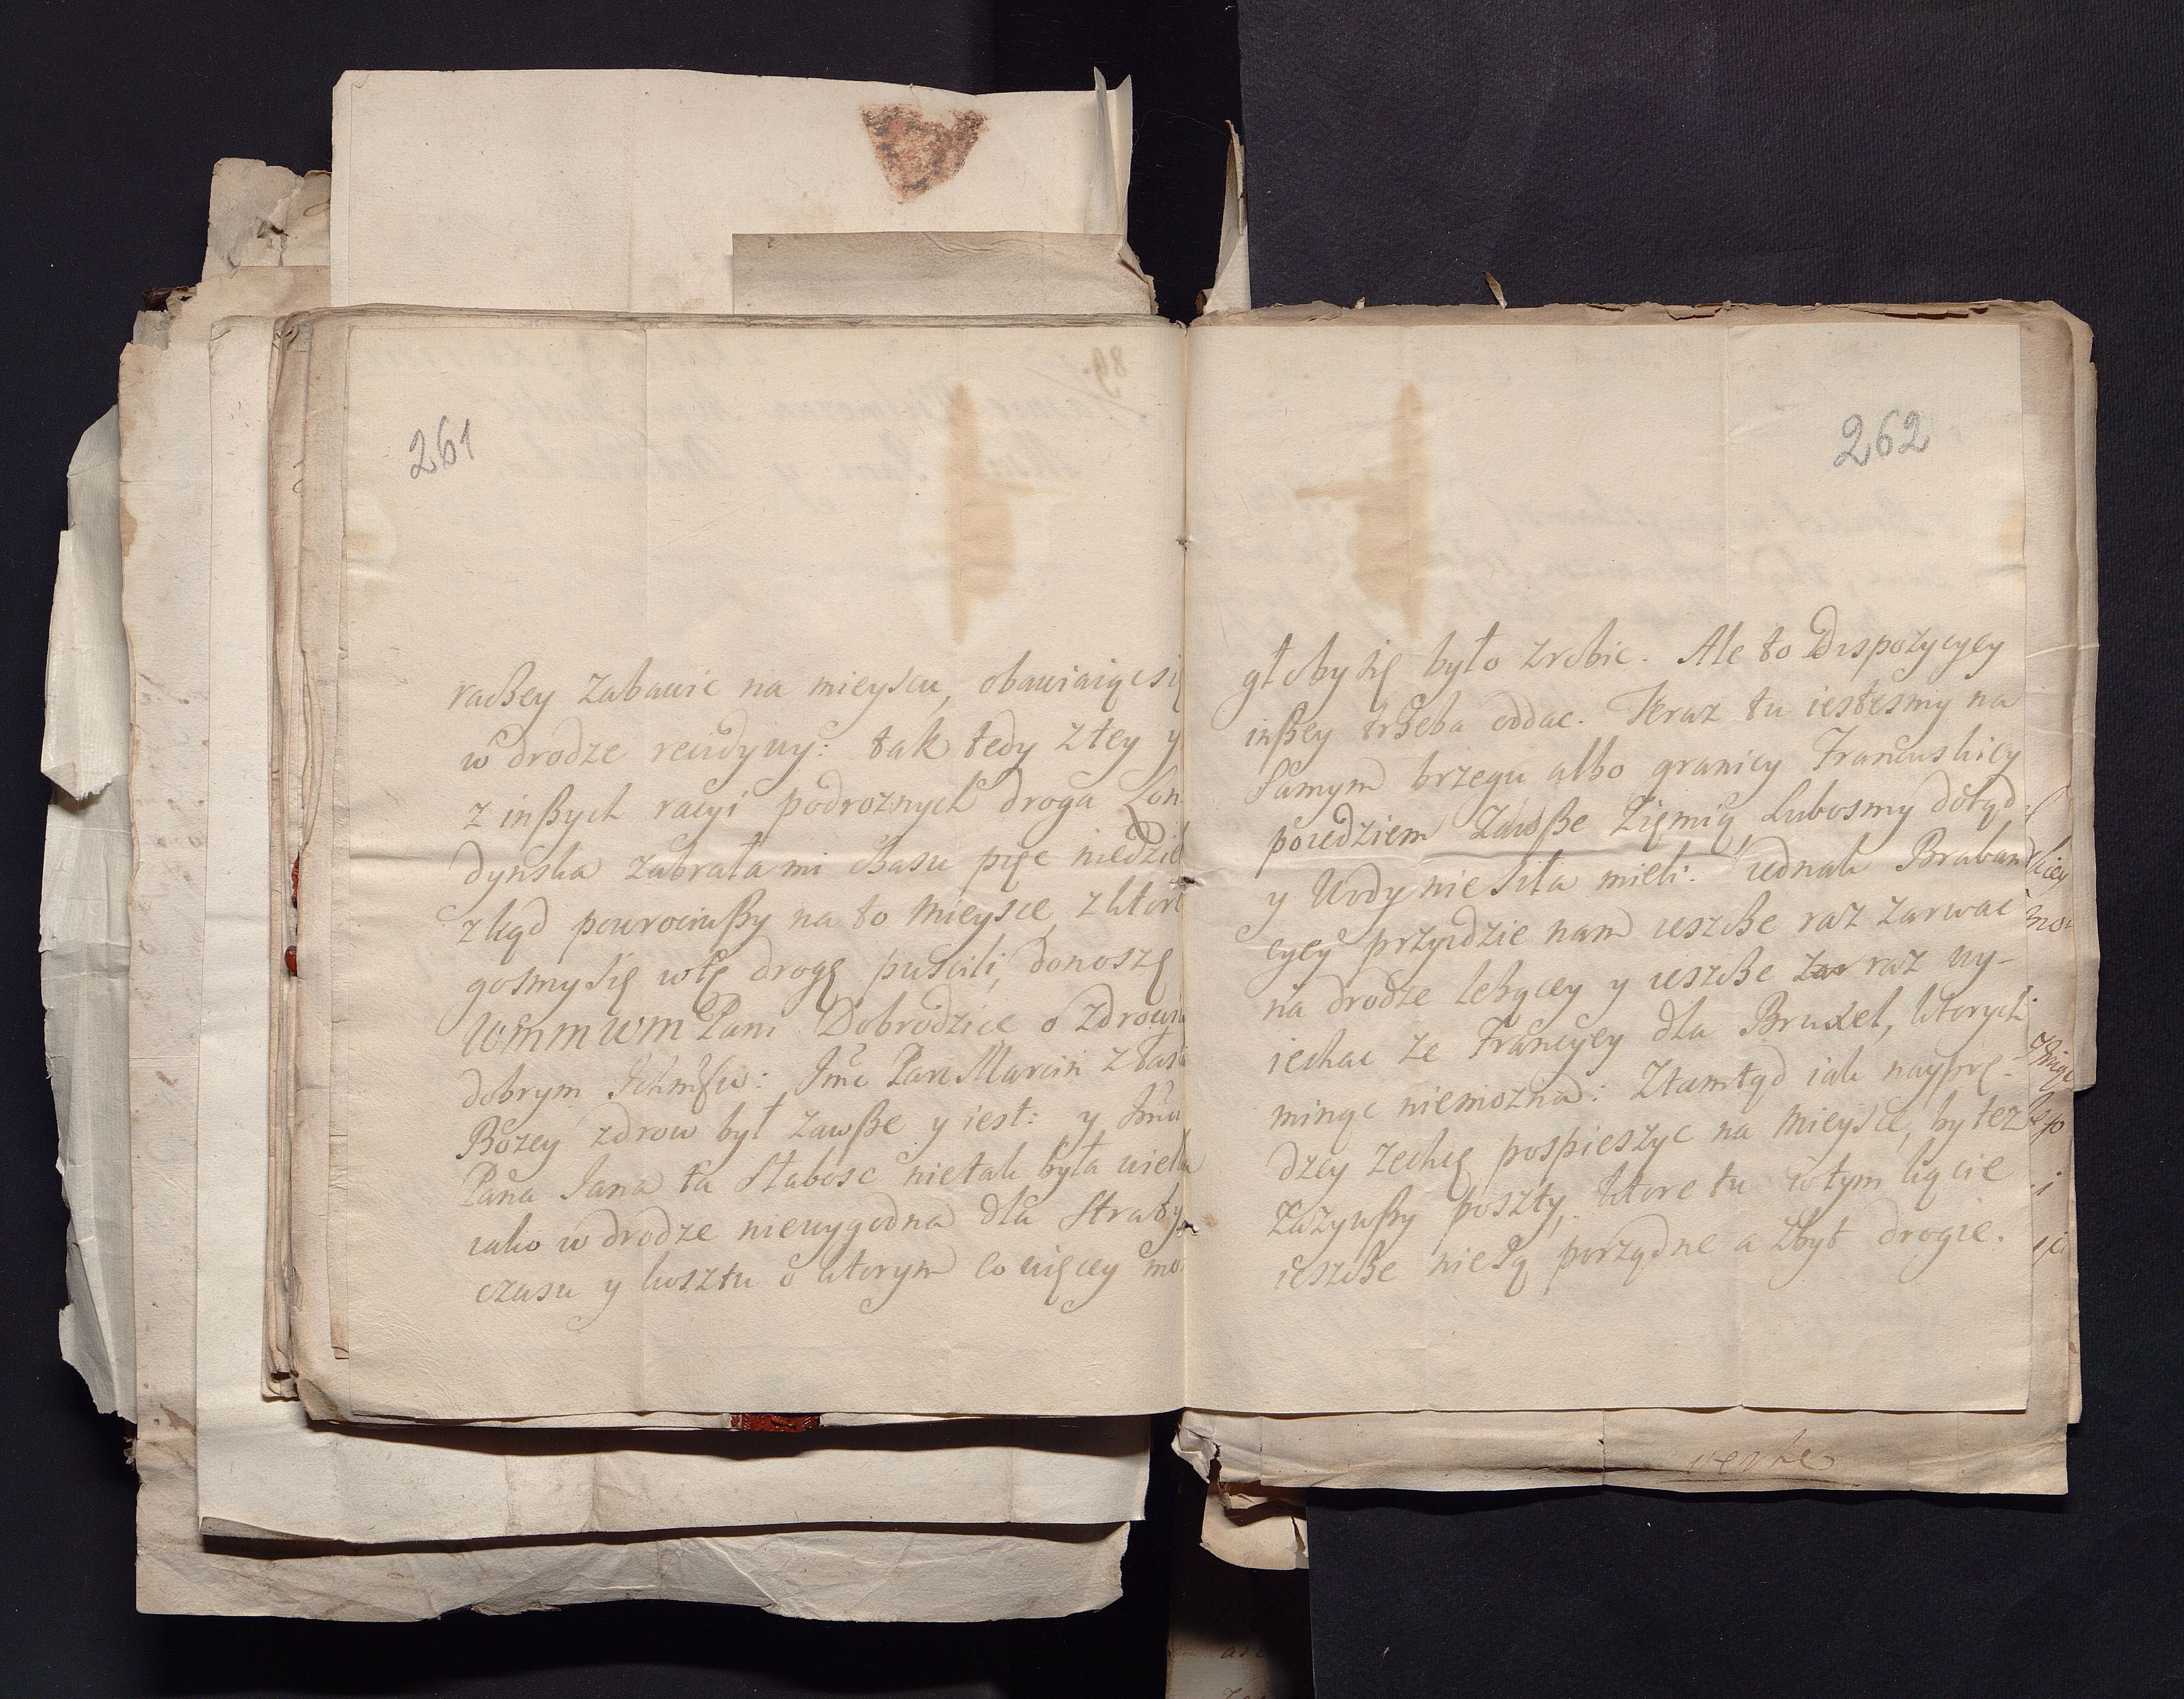 261
raczey zabawic na mieyscu, obawiaiąc się
w drodze recidywy: tak tedy z tey y
z inßych racyi podroznych droga Lon-
dynska zabrała mi czasu pięc niedziel
zkąd powrociwßy na to mieysce, z ktore
gosmy się w tę drogę puscili, donoszę
WMMWM Pani Dobrodzice o zdrowiu
dobrym Ichmsciw: Jmc Pan Marcin z łaski
Bozey zdrow był zawße y iest: y Jmci
Pana Jana ta słabosc nie tak była wielka
iako w drodze niewygodna dla straty
czasu y kosztu o ktorym co więcey mo
262
głoby się było zrobic. Ale to Dispozycyey
inßey trzeba oddac. Teraz tu iestesmy na
samym brzegu albo granicy Francuskiey
poiedziem zawße Ziemią, lubosmy dotąd
y Wody nie siła mieli. iednak Braban
cyey przyidzie nam ieszcze raz zarwac
na drodze lezącey y ieszcze raz wy-
iechac ze Francyey dla Bruxel, ktorych
minąc niemozna: Ztamtąd iak nayprę-
dzey zechcę pospieszyc na Mieysce, by tez
zazywßy poszty, ktore tu w tym kącie
ieszcze nie są porządne a zbyt drogie.
verte